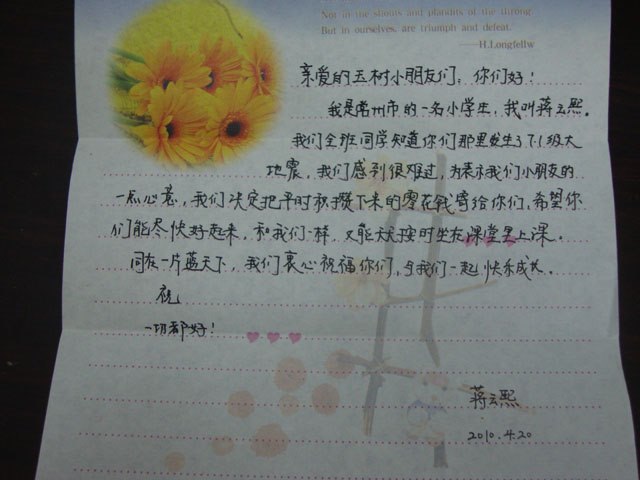 Not in the shouts and plaudits of the throng
But in ourselves, are triumph and defeat.
—H.Longfellw
亲爱的玉树小朋友们：你们好！
我是常州市的一名小学生，我叫蒋云熙。
我们全班同学知道你们那里发生了7.1级大
地震，我们感到很难过，为表示我们小朋友的
一点心意，我们决定把平时积攒下来的零花钱寄给你们，希望你
们能尽快好起来，和我们一样，又能天天按时坐在课堂里上课。
同在一片蓝天下，我们衷心祝福你们，与我们一起快乐成长。
祝
一切都好！
蒋云熙
2010.4.20